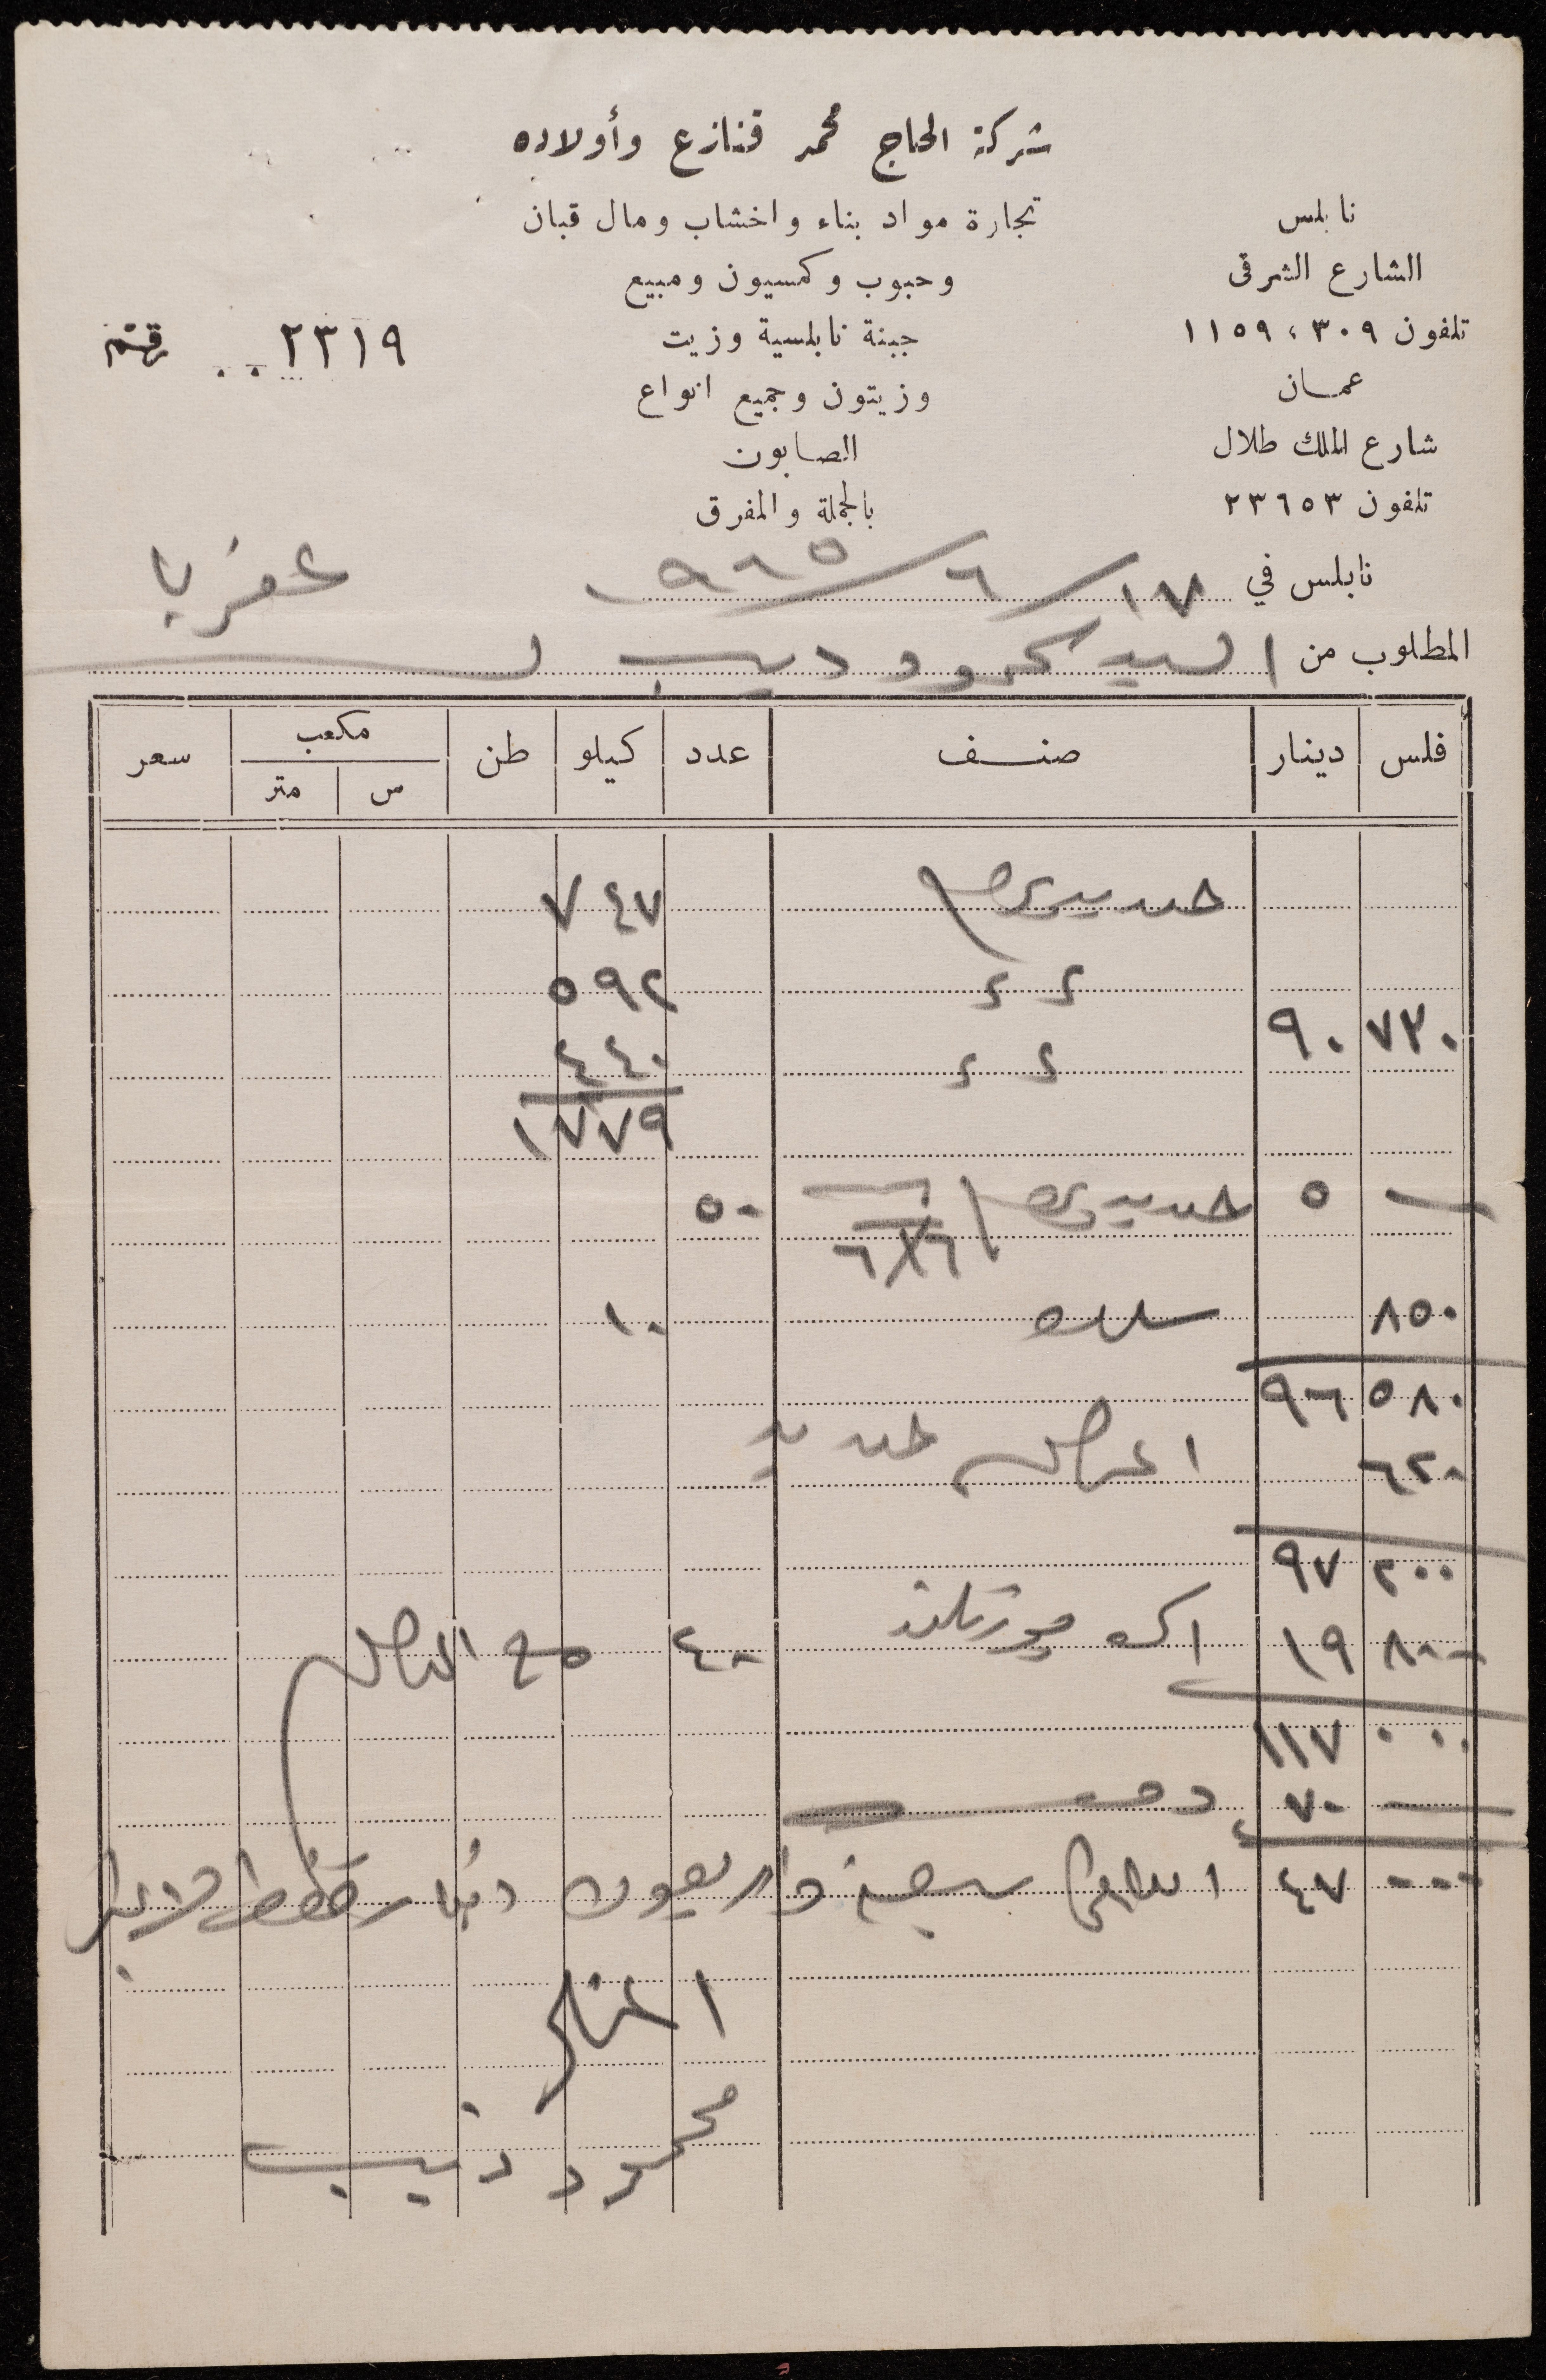 شركة الحاج محمد قنازع وأولاده
تجارة مواد بناء واخشاب ومال قبان
وحبوب وكمسيون ومبيع
جبنة نابلسية وزيت
وزيتون وجميع انواع
الصابون
بالجملة والمفرق
نابلس
الشارع الشرقى
تلفون ٣٠٩ ، ١١٥٩
عمان
شارع الملك طلال
تلفون ٢٣٦٥٣
٢٣١٩
نابلس في ١٧/٦/٩٦٥
المطلوب من السيد محمود ديب
فلس دينار صنف عدد كيلو طن مكعب سعر
س متر
حديد ٧٤٧
٥٩٢
٧٣٠ ٩٠
٤٤٠
١٧٧٩
٥ حديد ٥٠
٦×٦
٨٥٠ سلك ١٠
٥٨٠ ٩٦
٦٢٠ اغراض حديد
٢٠٠ ٩٧
٨٠٠ ١٩ ٤٠
٠٠٠ ١١٧
٧٠ دفعه
٠٠٠ ٤٧ الباقي سبعة واربعون دينار فقط لاغير
محمود ذيب